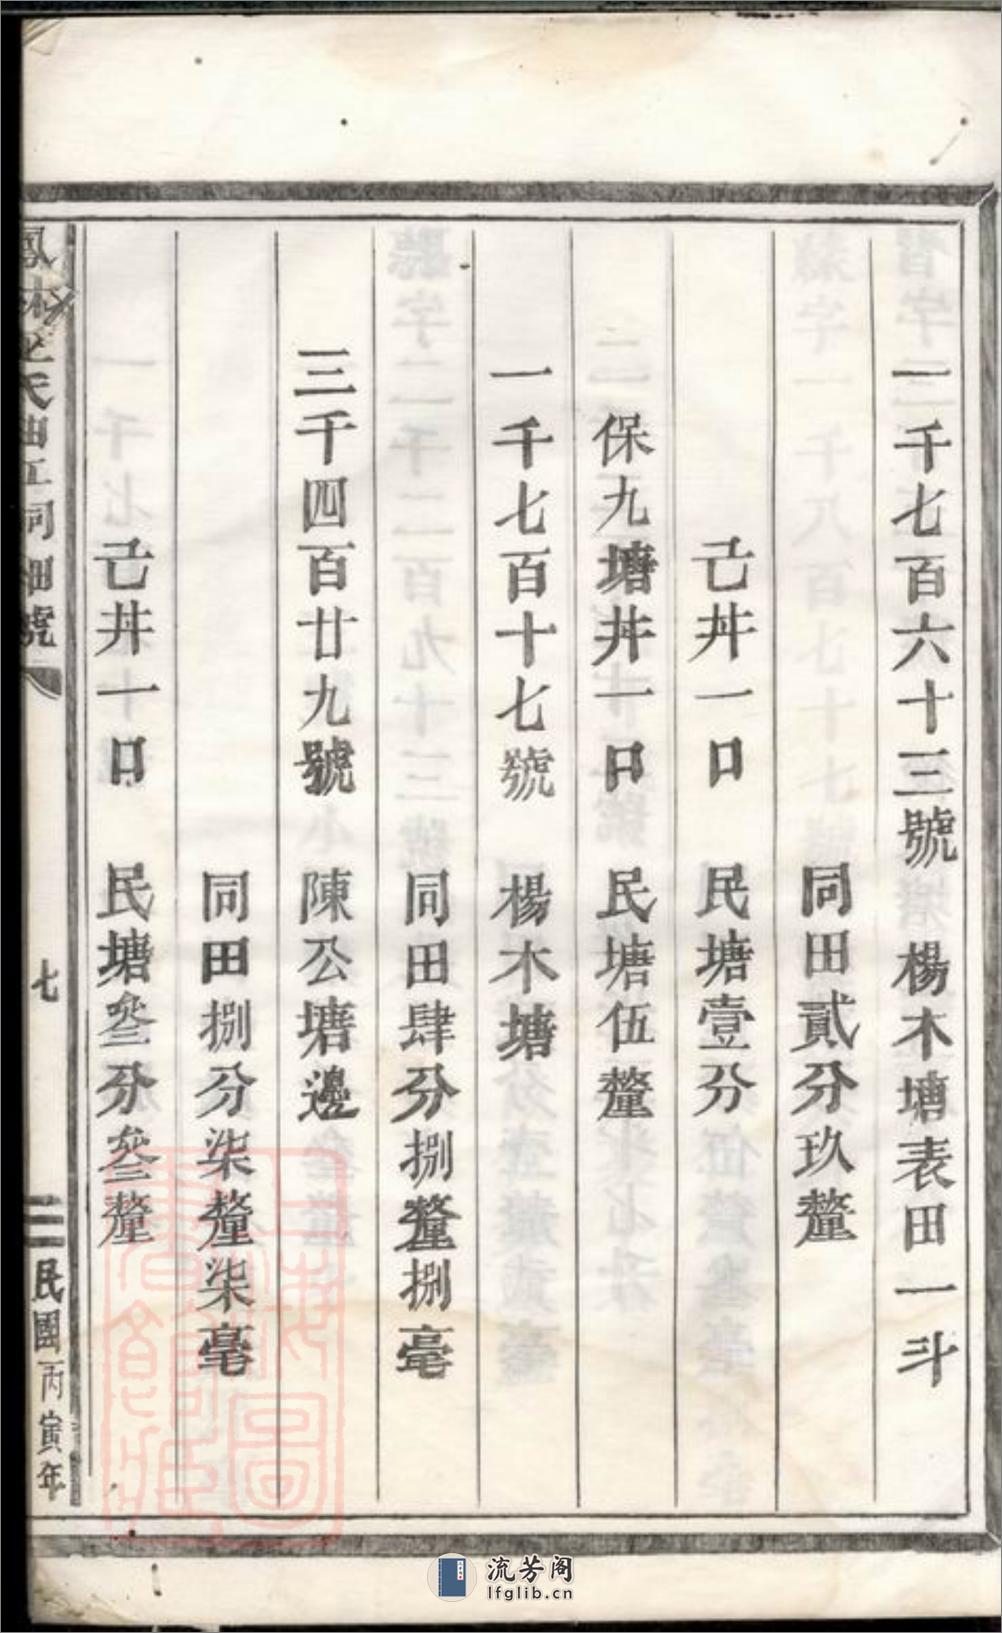 一千七百六十三號 楊木塘表田一斗
同田貳分玖釐
己井一口 民塘壹分
保九塘井一口 民塘伍釐
一千七百十七號 楊木塘
同田肆分捌釐捌毫
三千四百廿九號 陳公塘邊
同田捌分柒釐柒毫
己井一口 民塘叄分叄釐
七
民國丙寅年
流芳阁
lfglib.cn